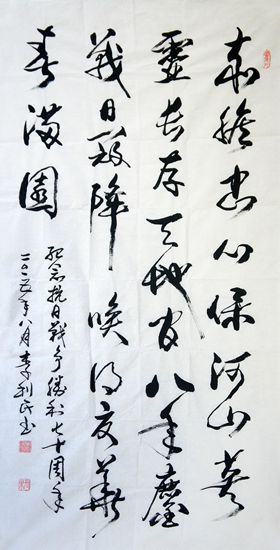 赤膽忠心保河山英
靈長存天地间八年鏖
戰日寇降唤得華
春滿園
纪念抗日戰争勝利七十周年
二〇一五年八月李利民书